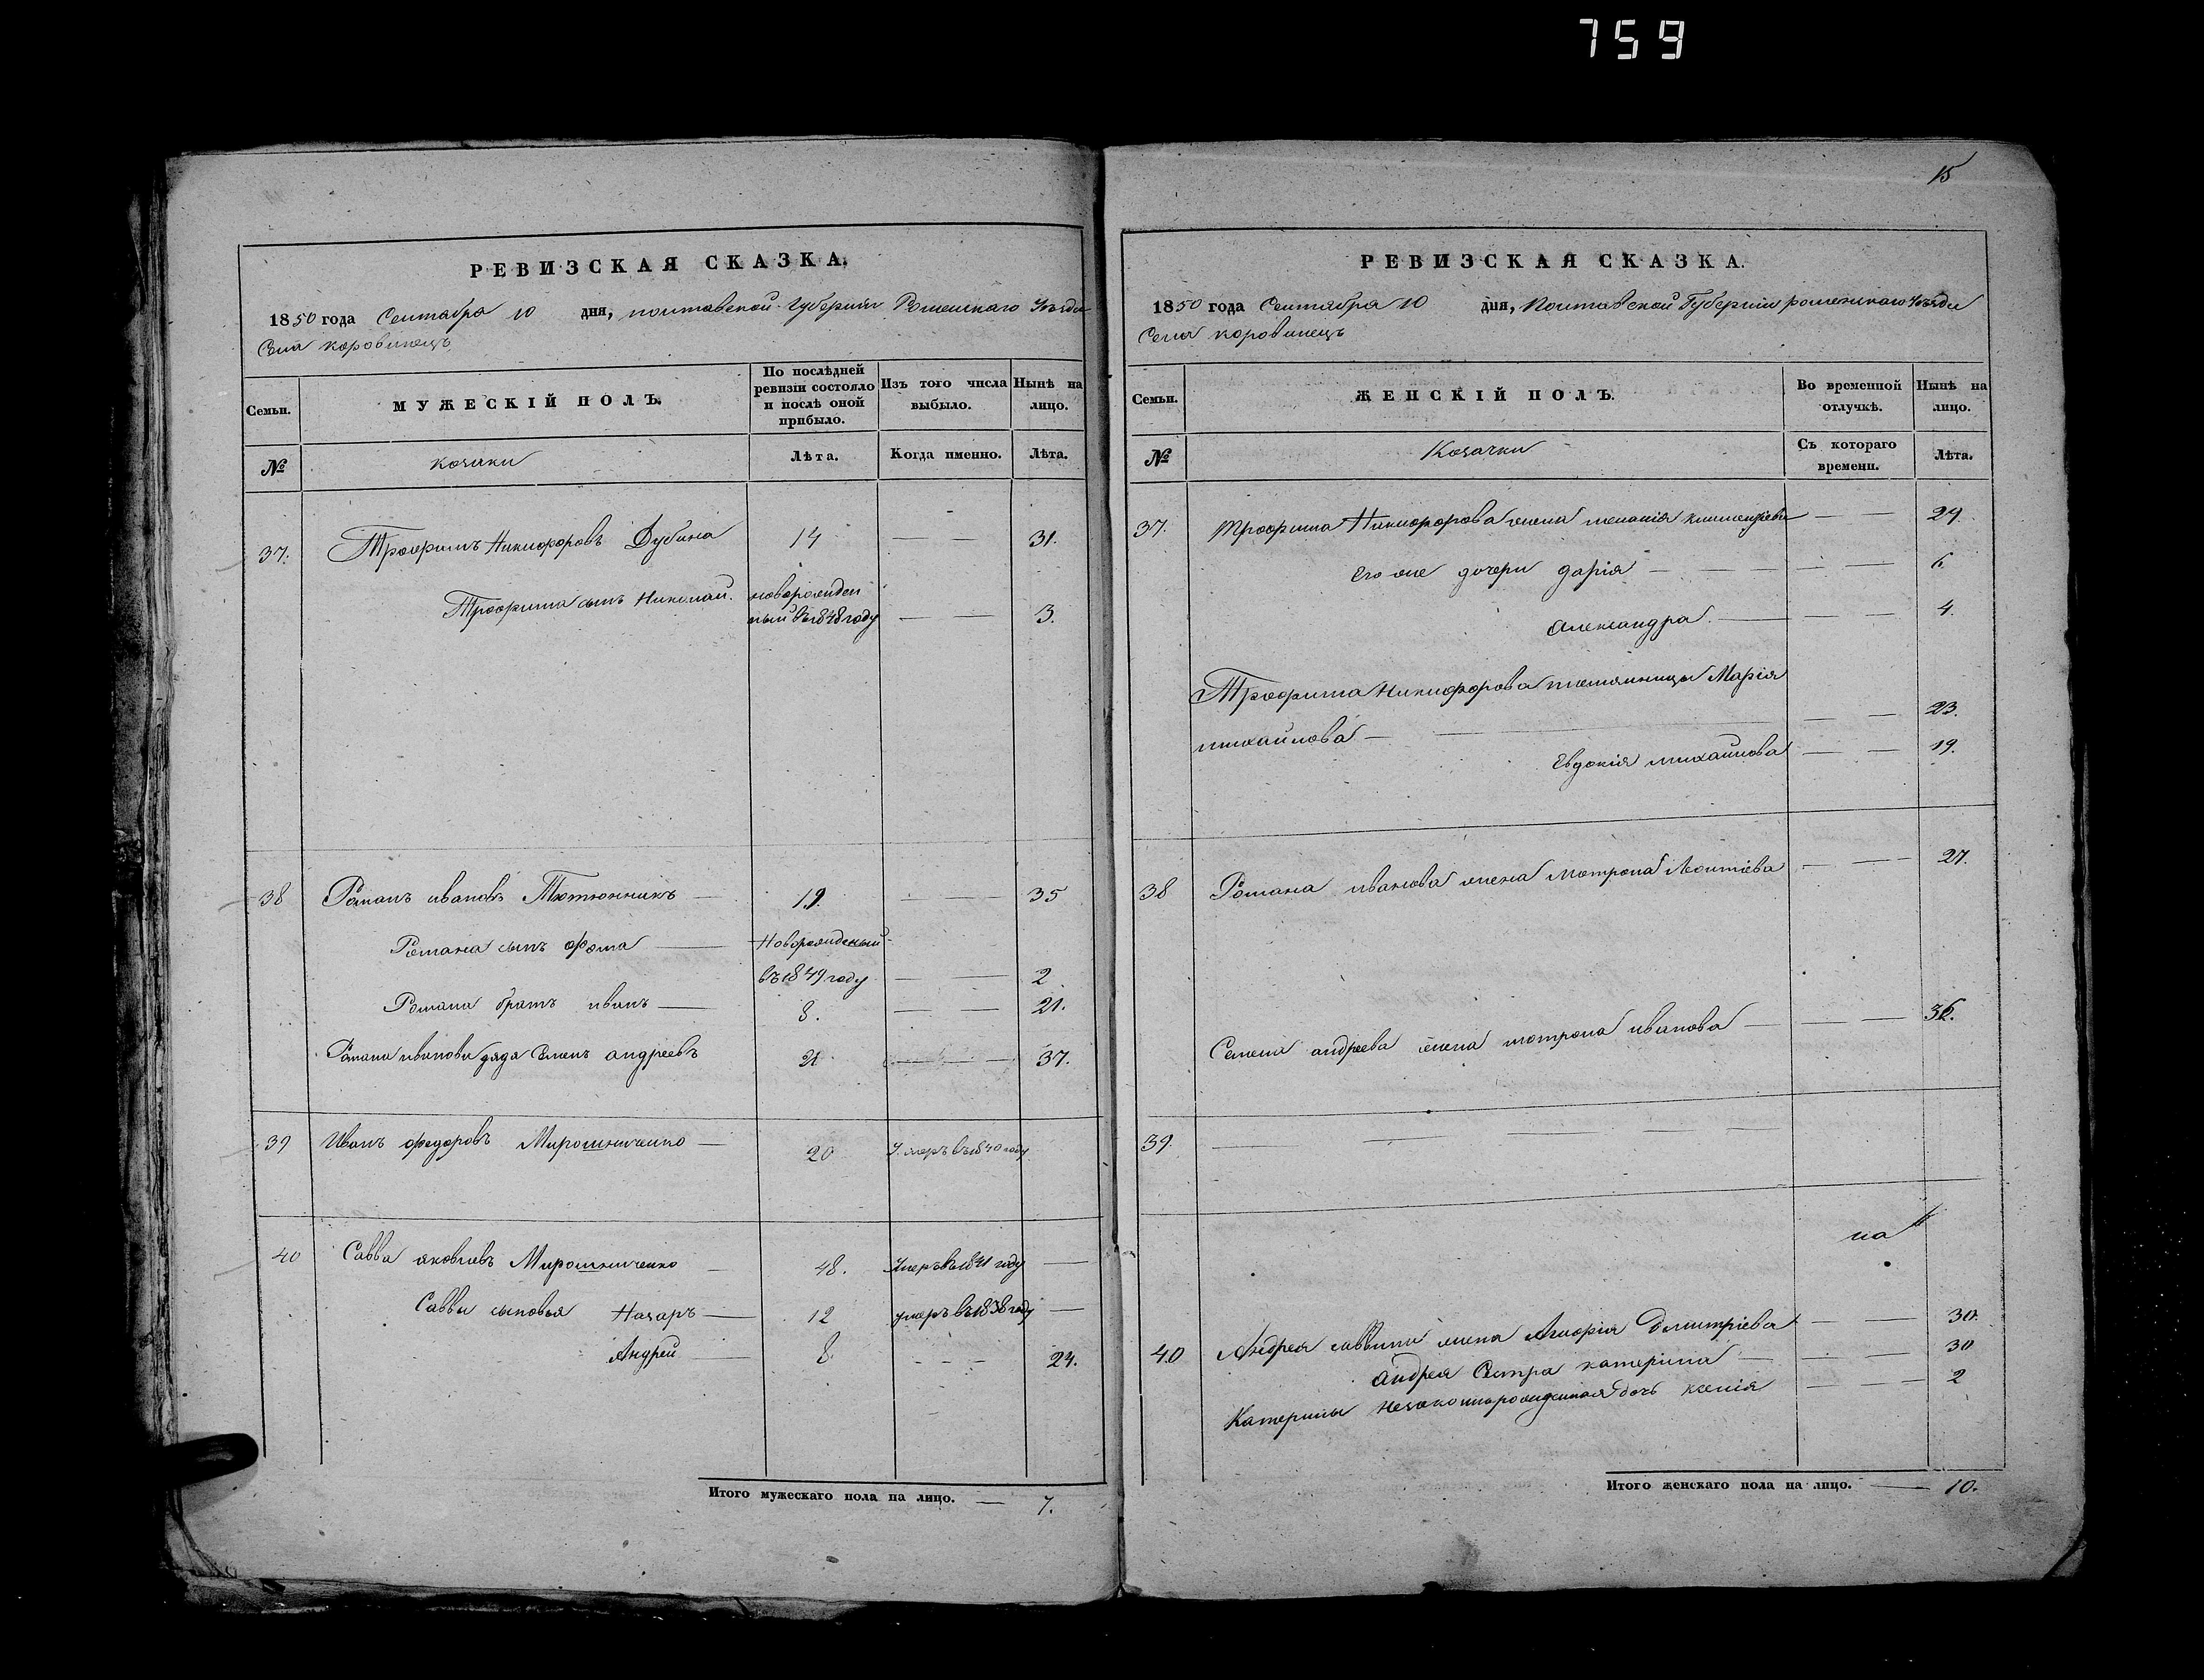 759
РЕВИЗСКАЯ СКАЗКА.
1850 года Сентября 10 дня, полтавской Губерніи Роменскаго Уѣзда
Села коровинецъ
Семьи.
МУЖЕСКІЙ ПОЛЪ.
По послѣдней ревизіи состояло и послѣ оной прибыло.
Изъ того числа выбыло.
Нынѣ на лицо.
№
козаки
Лѣта.
Когда именно.
Лѣта.
37. Трофимъ Никифоровъ Дубина 14 — — 31.
Трофима сынъ Николай. новорожден
ный въ 1848 году — — 3.
38 Романъ ивановъ Тютюнникъ — 19. — — 35
Романа сынъ фома — Новорожденый
въ 1849 году — — 2
Романа братъ иванъ — 8. — — 21.
Романа иванова дядя Семенъ андреевъ 21 — 37.
39 Иванъ федоровъ Мирошниченко — 20 Умеръ въ 1840 году
40 Савва яковлевъ Мирошниченко — 48. Умеръ въ 1841 году —
Саввы сыновья Назаръ — 12 умеръ въ 1838 году —
Андрей — 8. - - - 24.
Итого мужескаго пола на лицо. — 7.
15
РЕВИЗСКАЯ СКАЗКА.
1850 года Сентября 10 дня, Полтавской Губерніи роменскаго уѣзда
Села коровинецъ
Семьи.
ЖЕНСКІЙ ПОЛЪ.
Во временной отлучкѣ.
Нынѣ на лицо.
№
Козачки
Съ котораго времени.
Лѣта.
37. Трофима Никифорова жена меланія климентіева — — 29.
Его же дочери дарія — — — — 6
Александра. — — — 4.
Трофима Никифорова племяницы Марія
михайлова — — — — 23.
Евдокія михайлова — — 19.
38 Романа иванова жена мотрона Леонтіева — — 27.
Семена андреева жена мотрона иванова — — — 36.
39. — — — —
на
40 Андрея саввина жена Агафія Дмитріева — — 30.
Андрея Сестра катерина — — — 30
Катерины незаконнорожденная дочь ксенія — — 2
Итого женскаго пола на лицо. — 10.